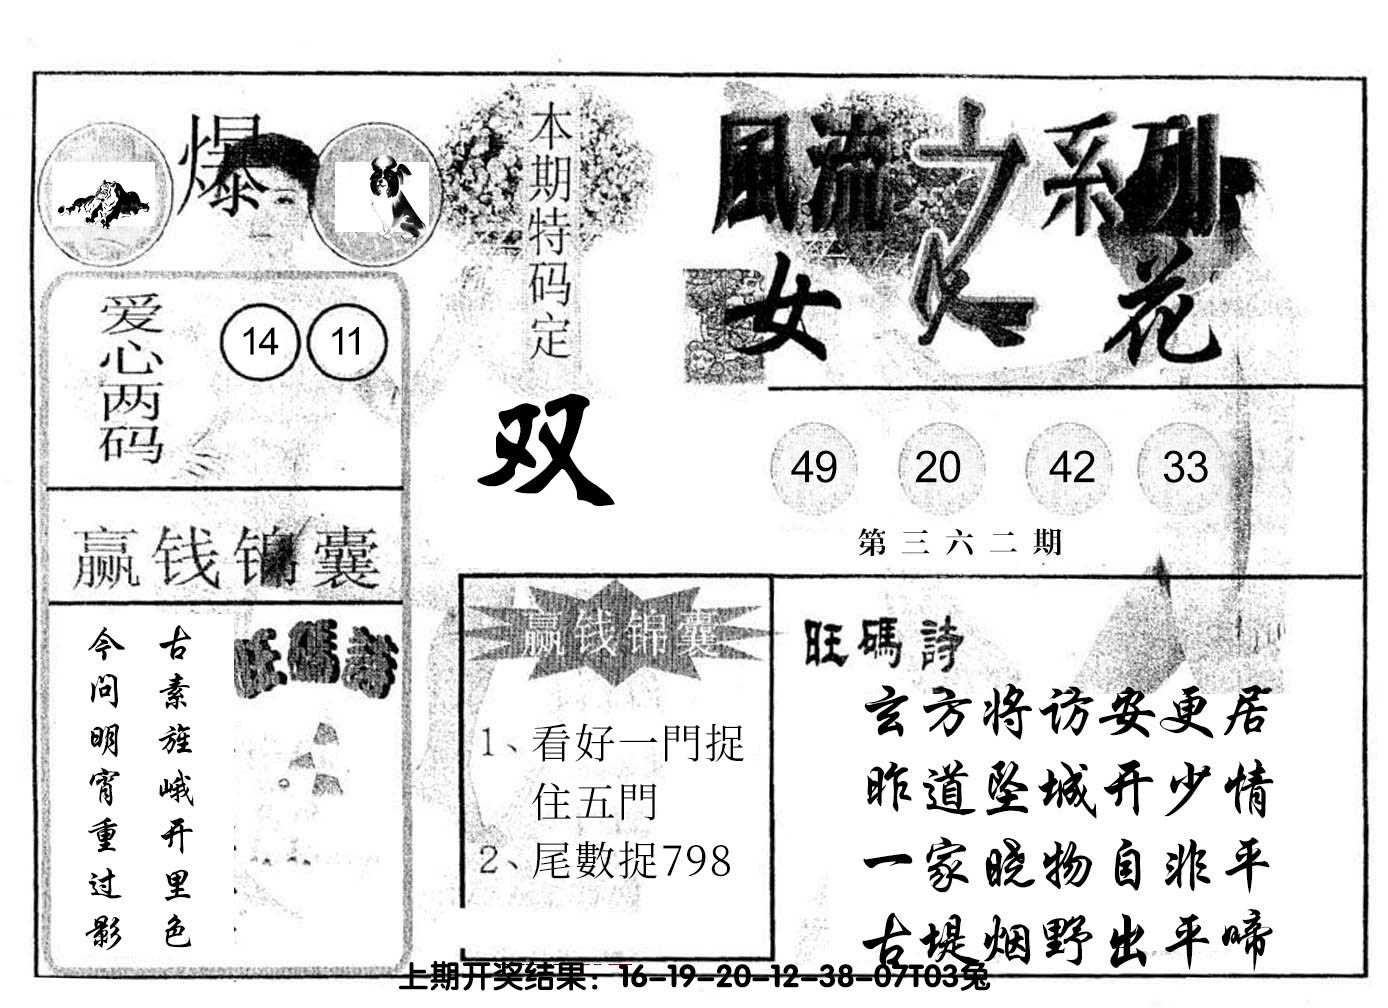 爆
本期特码定
双
風流之系列
女人花
爱心两码
14 11
49 20 42 33
第三六二期
赢钱锦囊
古素旌峨开里色
今问明宵重过影
旺碼詩
赢钱锦囊
1、看好一門捉
住五門
2、尾數捉798
旺碼詩
玄方将访安更居
昨道坠城开少情
一家晓物自非平
古堤烟野出平啼
上期开奖结果：16-19-20-12-38-07T03兔